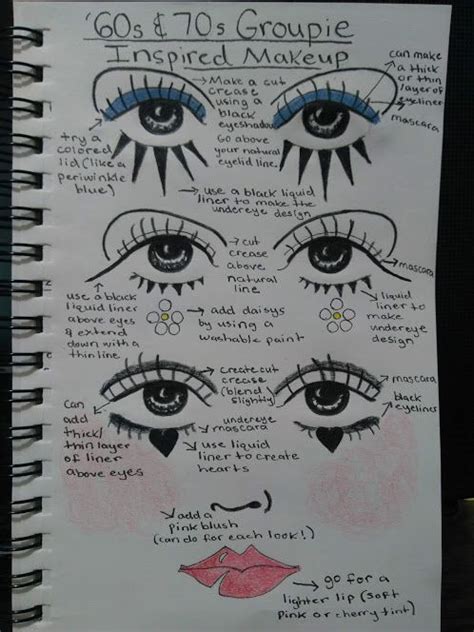 '60s & 70s Groupie
Inspired Makeup
→Make a cut
crease
using a
black
eyeshadow.
Go above
your natural
eyelid line.
can make
a thick
or thin
layer of
eyeliner
mascara
try a
colored
lid (like a
periwinkle
blue)
→ use a black liquid
liner to make the
undereye design
→ cut
crease
above
natural
line
→mascara
use a black
liquid liner
above eyes
& extend
down with a
thin line
→ add daisys
by using a
washable paint
liquid
liner to
make
undereye
design
create cut
crease
(blend
slightly)
→mascara
black
eyeliner
Can
add
thick/
thin layer
of liner
above eyes
undereye
mascara
→ use liquid
liner to create
hearts
→add a
pink blush
(can do for each look!)
→ go for a
lighter lip (soft
pink or cherry tint)